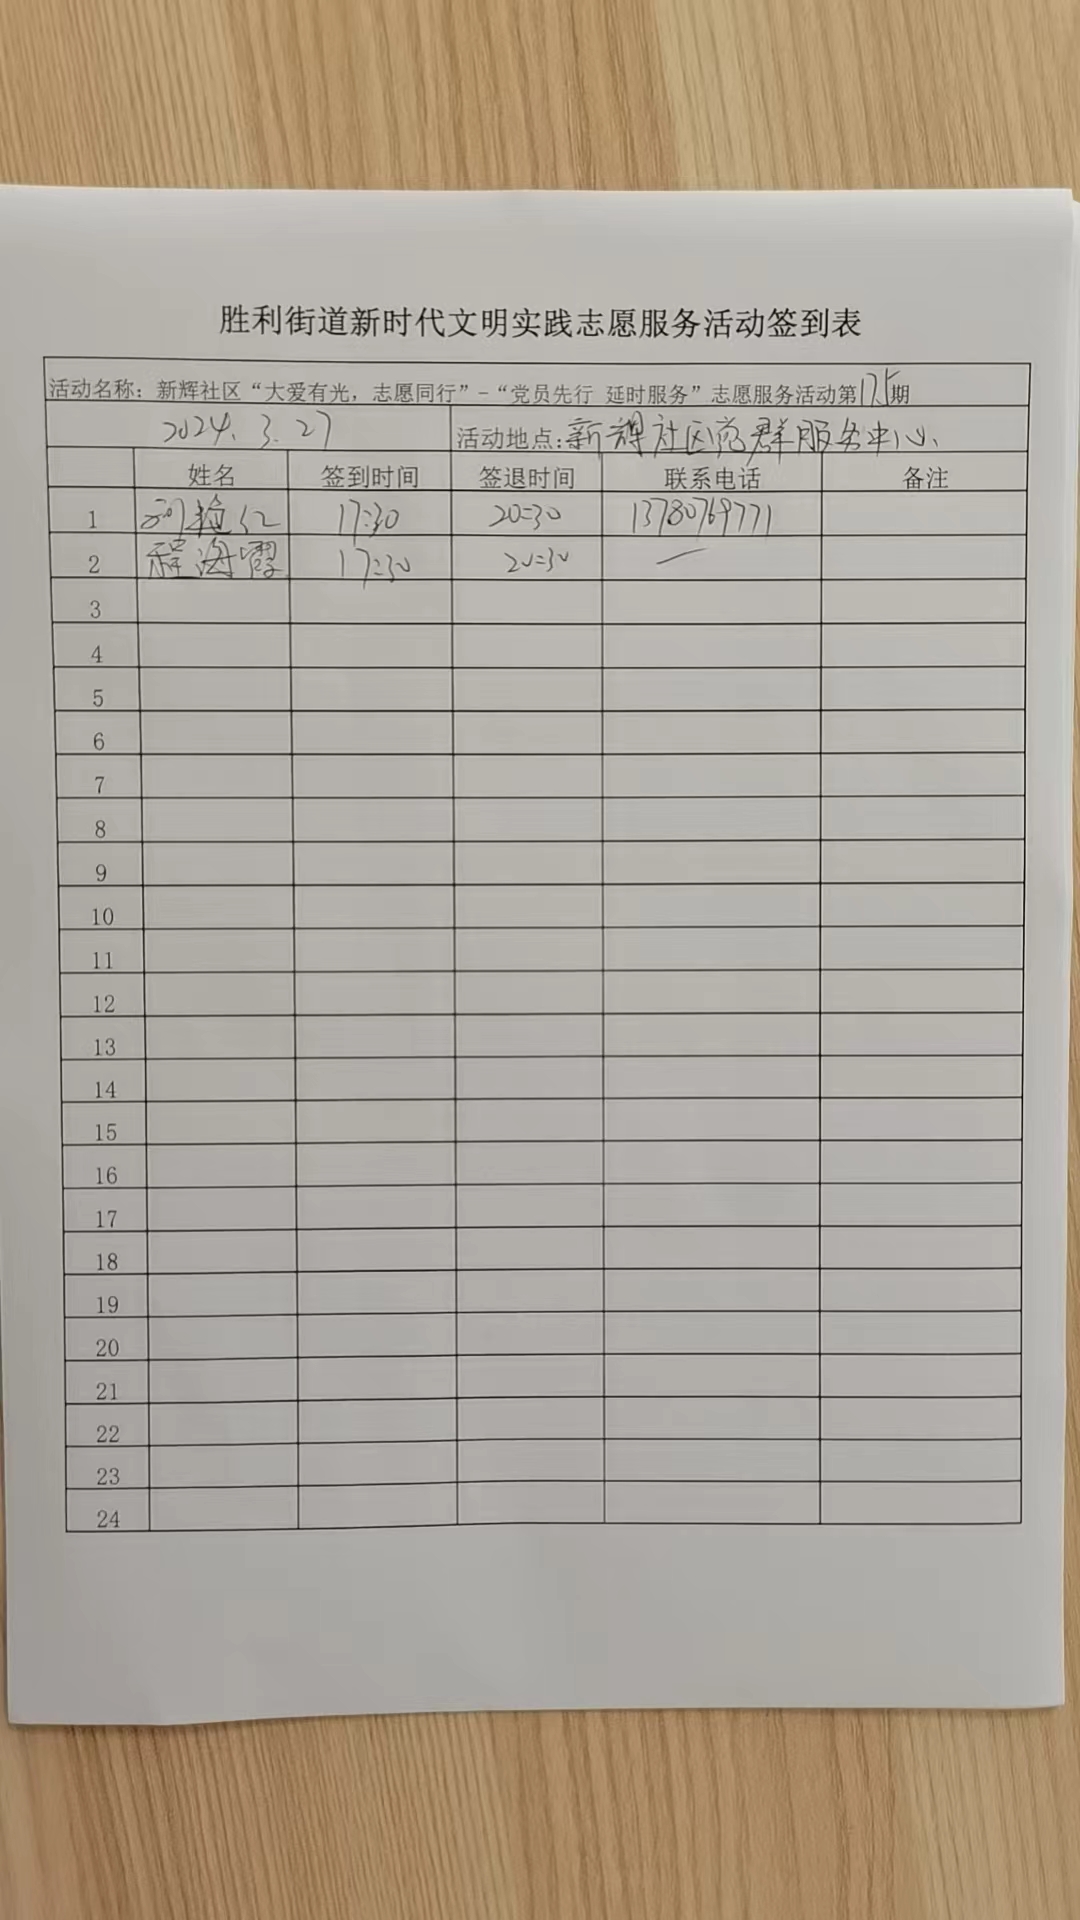 胜利街道新时代文明实践志愿服务活动签到表
活动名称：新辉社区“大爱有光，志愿同行”-“党员先行 延时服务”志愿服务活动第175期
2024.3.27 活动地点:新辉社区党群服务中心
姓名 签到时间 签退时间 联系电话 备注
1 17:30 20:30 13780769771
2 程海霞 17:30 20:30 —
3
4
5
6
7
8
9
10
11
12
13
14
15
16
17
18
19
20
21
22
23
24